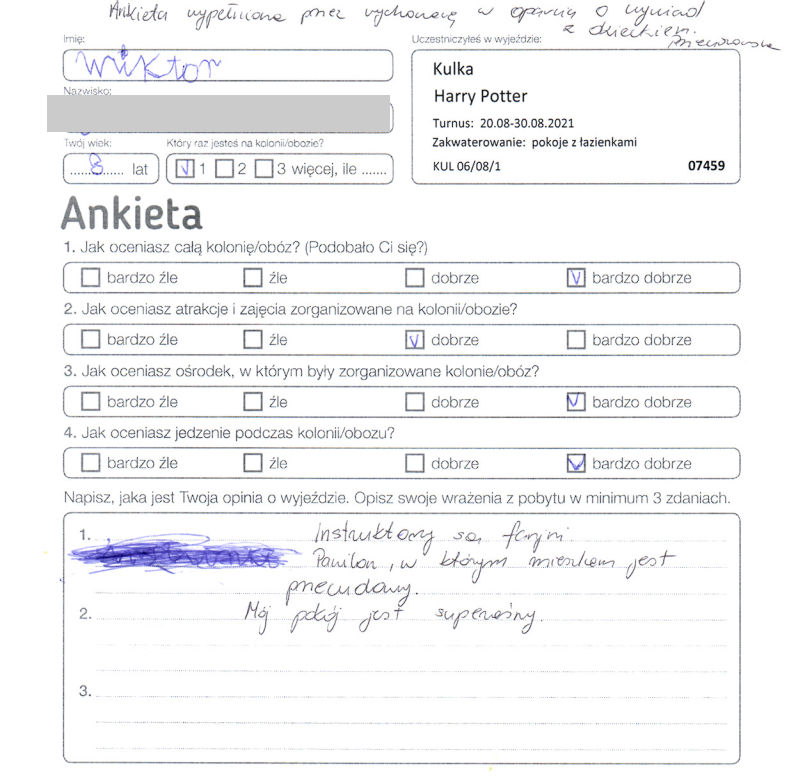 Ankieta wypełniona przez wychowawcę w oparciu o wywiad
z dzieckiem.
Imię:
Uczestniczyłeś w wyjeździe:
Wiktor
Kulka
Harry Potter
Nazwisko:
Turnus: 20.08-30.08.2021
Twój wiek:
Który raz jesteś na kolonii/obozie?
Zakwaterowanie: pokoje z łazienkami
......8...... lat
V 1 2 3 więcej, ile .......
KUL 06/08/1
07459
Ankieta
1. Jak oceniasz całą kolonię/obóz? (Podobało Ci się?)
bardzo źle źle dobrze V bardzo dobrze
2. Jak oceniasz atrakcje i zajęcia zorganizowane na kolonii/obozie?
bardzo źle źle V dobrze bardzo dobrze
3. Jak oceniasz ośrodek, w którym były zorganizowane kolonie/obóz?
bardzo źle źle dobrze V bardzo dobrze
4. Jak oceniasz jedzenie podczas kolonii/obozu?
bardzo źle źle dobrze V bardzo dobrze
Napisz, jaka jest Twoja opinia o wyjeździe. Opisz swoje wrażenia z pobytu w minimum 3 zdaniach.
1. Instruktorzy są fajni.
Pawilon, w którym mieszkam jest
przecudowny.
2. Mój pokój jest supereśny.
3.